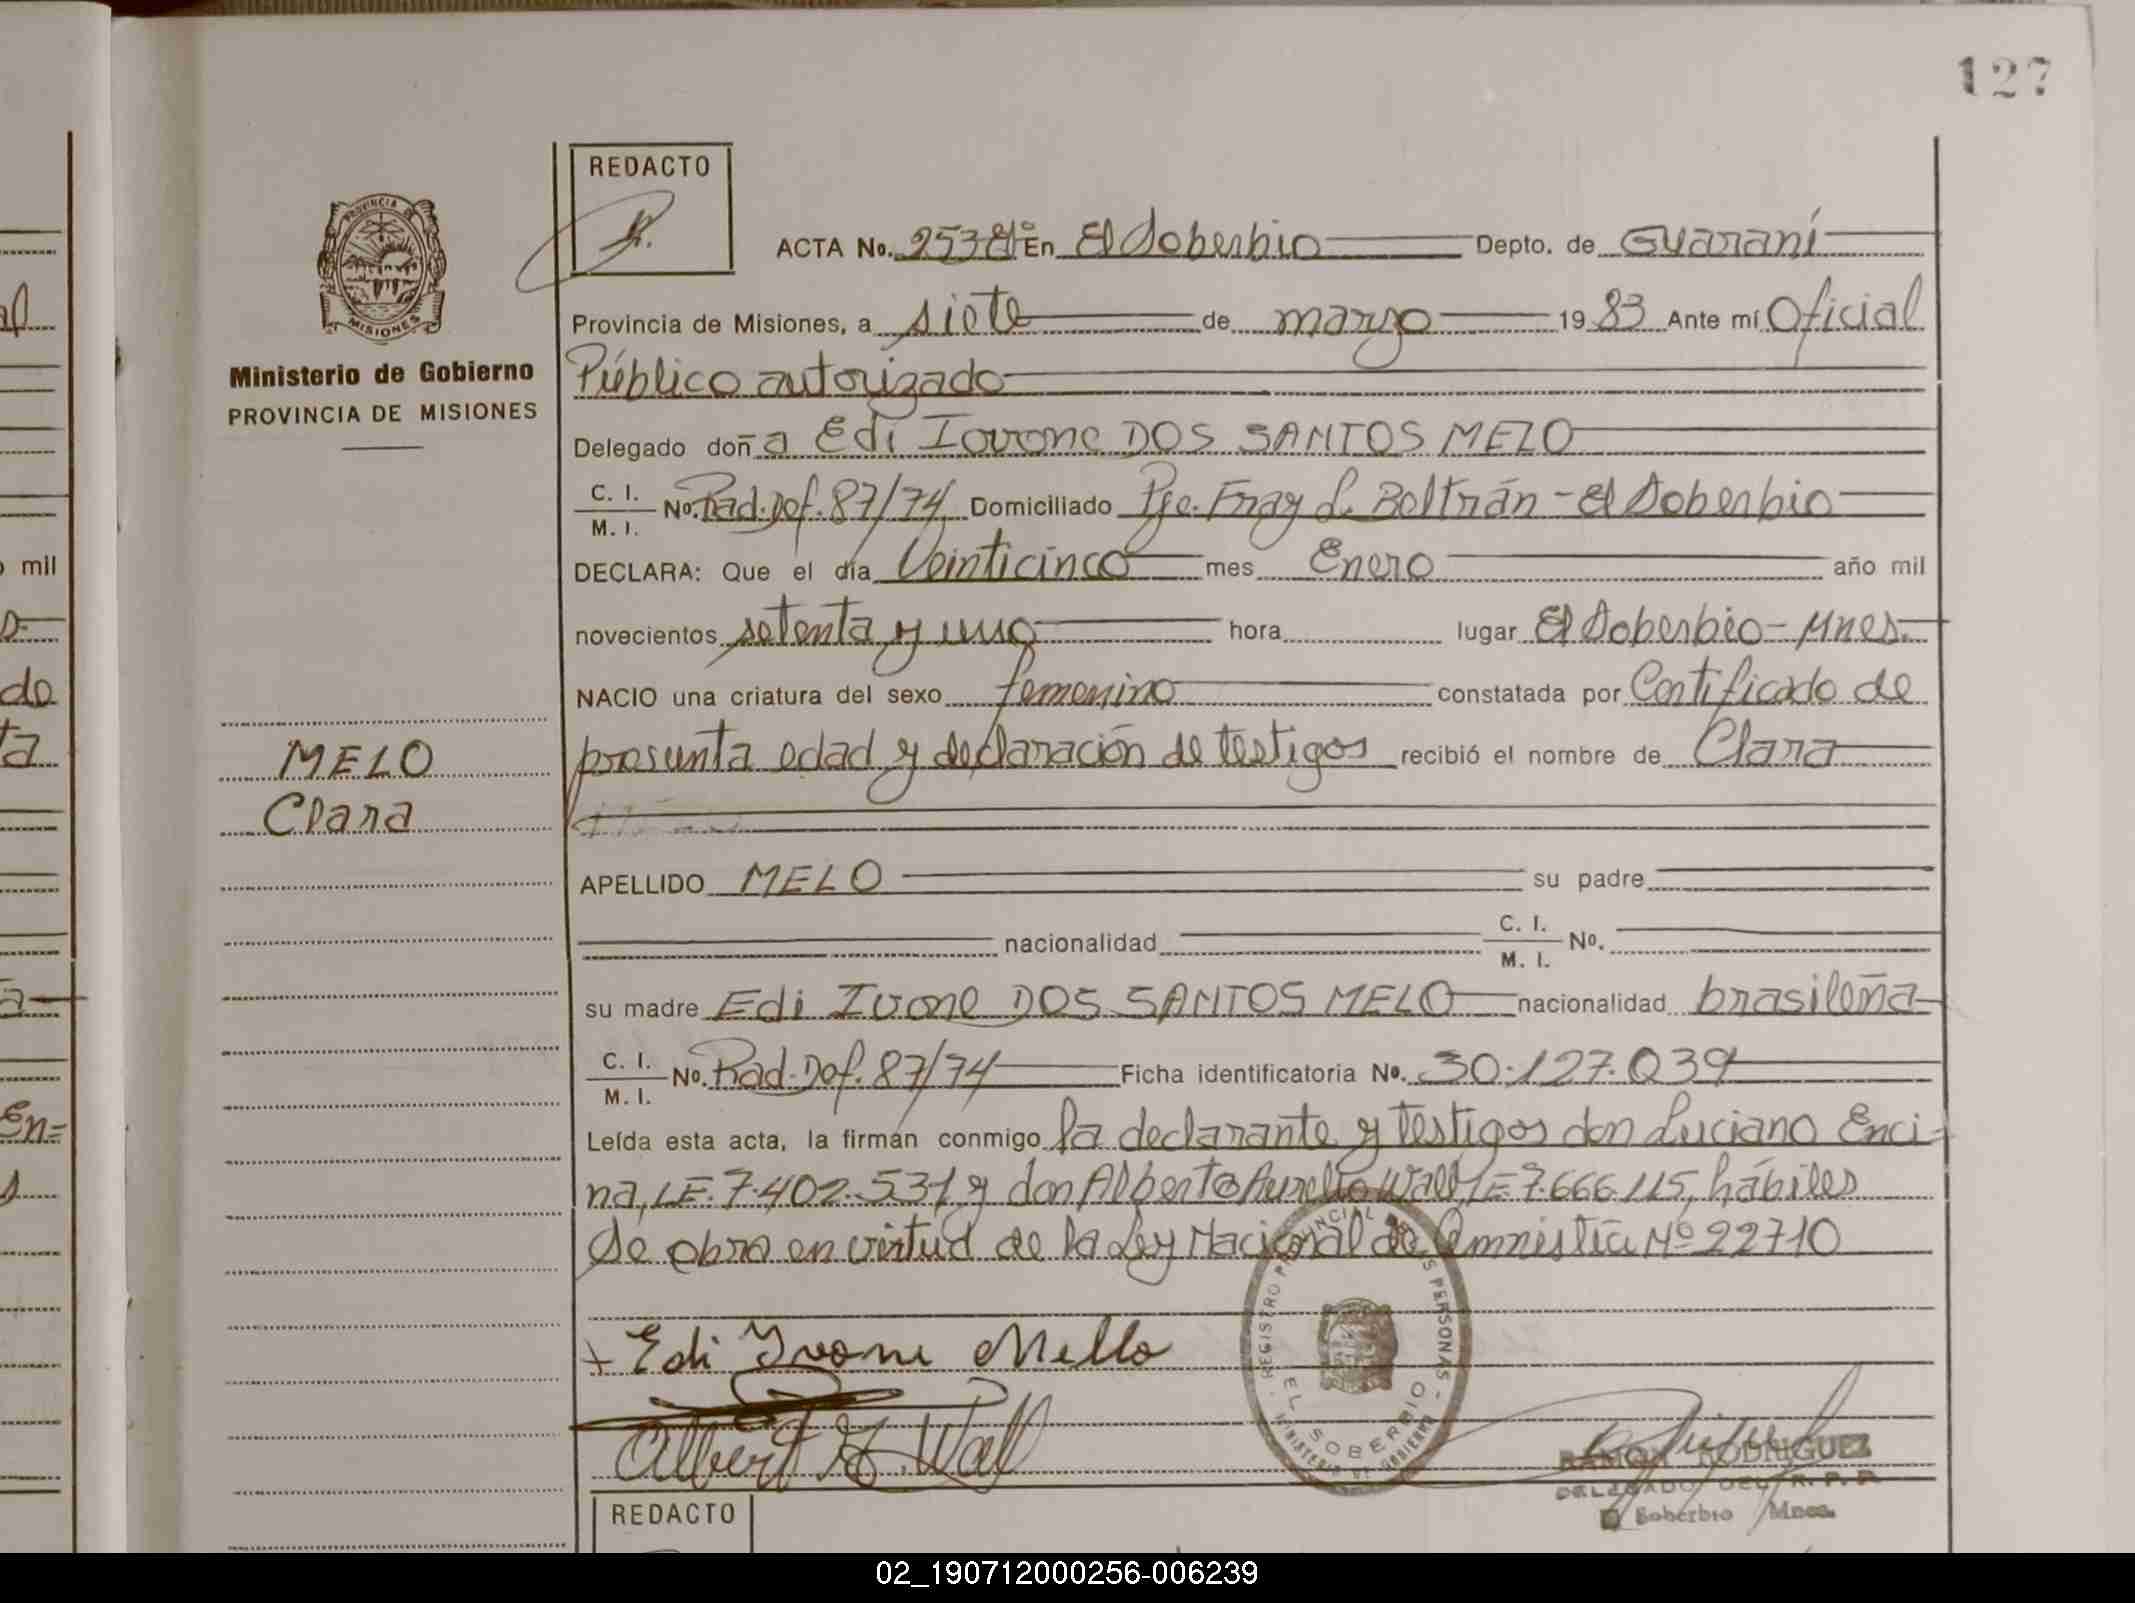 127
REDACTO
PROVINCIA DE
MISIONES
ACTA No. 253 En El Soberbio Depto. de Guaraní
Provincia de Misiones, a siete de marzo 1983 Ante mí Oficial
Ministerio de Gobierno
PROVINCIA DE MISIONES
Público autorizado
Delegado doña Edi Ivone DOS SANTOS MELO
C. I.
M. I.
No. Rad. Def. 87/74 Domiciliado Pje. Fray L. Beltrán - El Soberbio
DECLARA: Que el día Veinticinco mes Enero año mil
novecientos setenta y uno hora lugar El Soberbio - Mnes.
NACIO una criatura del sexo femenino constatada por Certificado de
presunta edad y declaración de testigos recibió el nombre de Clara
MELO
Clara
APELLIDO MELO su padre
nacionalidad C. I.
M. I. No.
su madre Edi Ivone DOS SANTOS MELO nacionalidad brasileña
C. I.
M. I.
No. Rad. Def. 87/74 Ficha identificatoria No. 30.127.039
Leída esta acta, la firman conmigo la declarante y testigos don Luciano Enci-
na, LE. 7.402.531 y don Alberto Aurelio Wall LE 7.666.115, hábiles
Se obra en virtud de la Ley Nacional de Amnistía Nº 22710
+ Edi Ivone Mello
Albert A. Wall
REGISTRO PROVINCIAL DE LAS PERSONAS
EL SOBERBIO
MINISTERIO DE GOBIERNO
RAMON RODRIGUEZ
DELEGADO DEL R. P. P.
El Soberbio Mnes.
REDACTO
mil
de
ta
En=
02_190712000256-006239